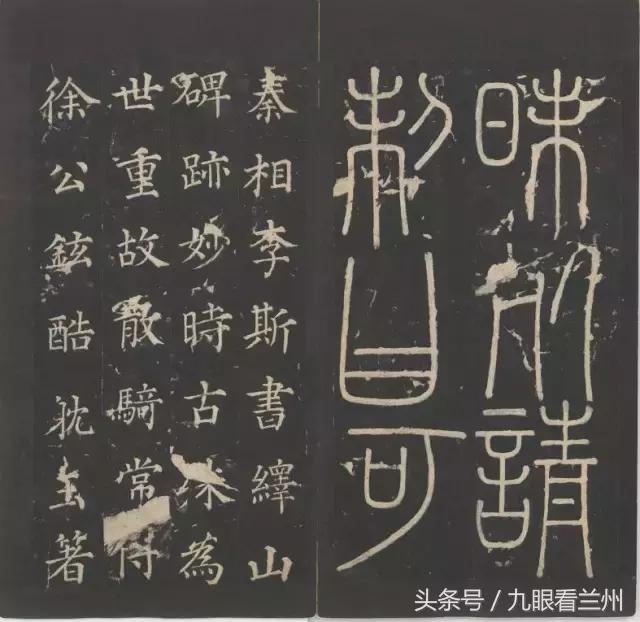 昧死請
制曰可
秦相李斯書繹山
碑跡妙時古殊為
世重故散騎常侍
徐公鉉酷躭玉著
头条号 / 九眼看兰州